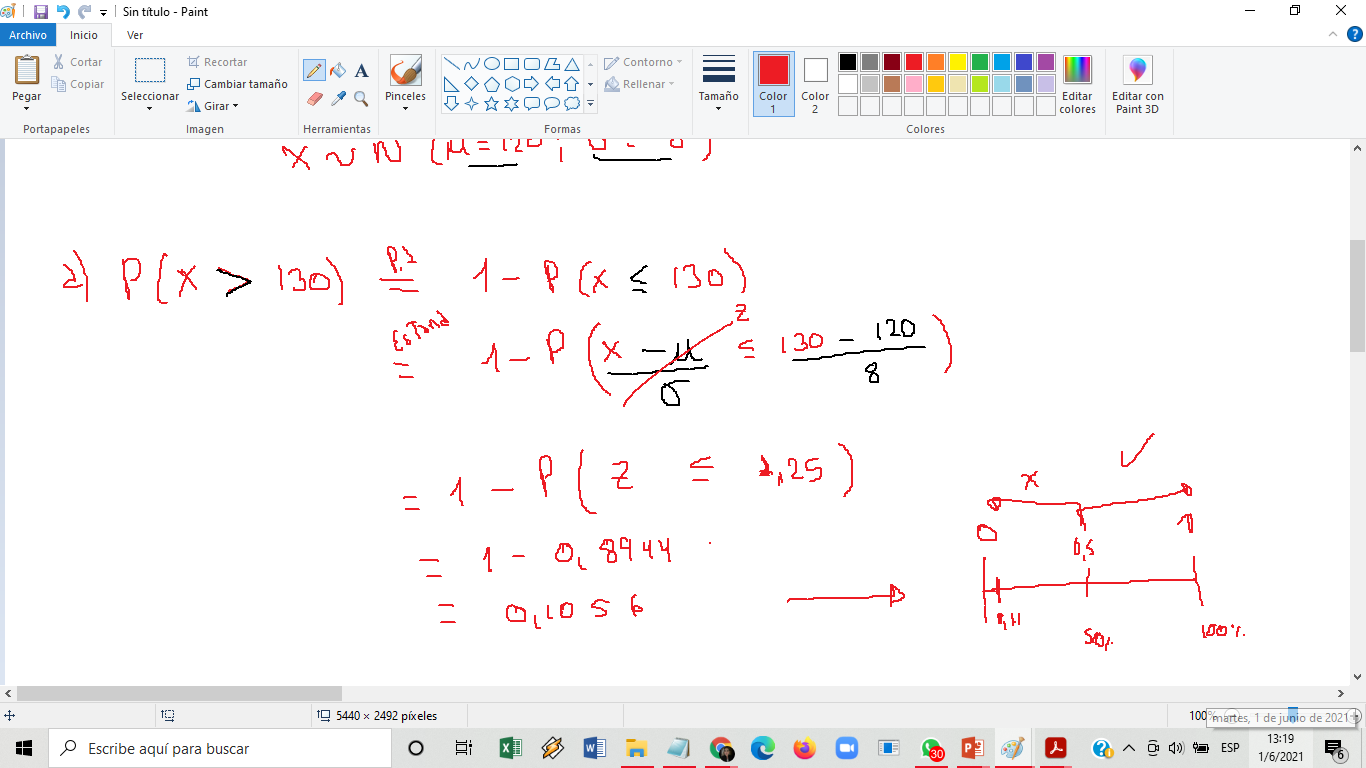 Sin título - Paint
Archivo Inicio Ver
Pegar
Cortar
Copiar
Portapapeles
Seleccionar
Recortar
Cambiar tamaño
Girar
Imagen
A
Herramientas
Pinceles
Contorno
Rellenar
Formas
Tamaño
Color 1
Color 2
Colores
Editar colores
Editar con Paint 3D
X ~ N (μ = 120 ; σ = 8)
a) P(X > 130) = 1 - P(X ≤ 130)
Estand
= 1 - P(X - μ / σ ≤ 130 - 120 / 8)
z
= 1 - P(Z ≤ 1,25)
= 1 - 0,8944
= 0,1056
x ✓
0 0,5 1
0,11 50% 100%
5440 × 2492 píxeles
100%
martes, 1 de junio de 2021
Escribe aquí para buscar
30
ESP
13:19
1/6/2021
6